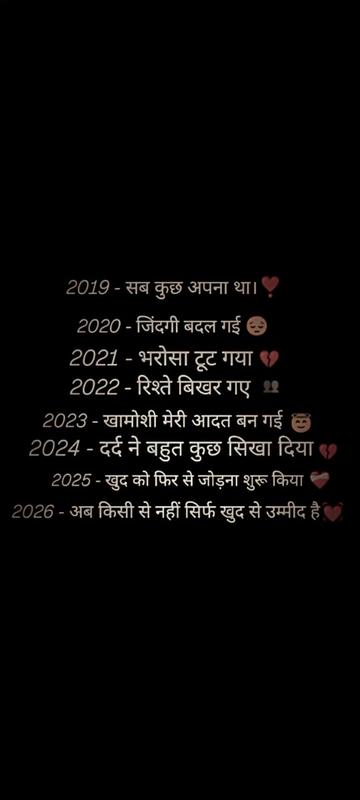 2019 - सब कुछ अपना था।❣️
2020 - जिंदगी बदल गई 😔
2021 - भरोसा टूट गया 💔
2022 - रिश्ते बिखर गए 👥
2023 - खामोशी मेरी आदत बन गई 😇
2024 - दर्द ने बहुत कुछ सिखा दिया 💔
2025 - खुद को फिर से जोड़ना शुरू किया ❤️‍🩹
2026 - अब किसी से नहीं सिर्फ खुद से उम्मीद है 💓